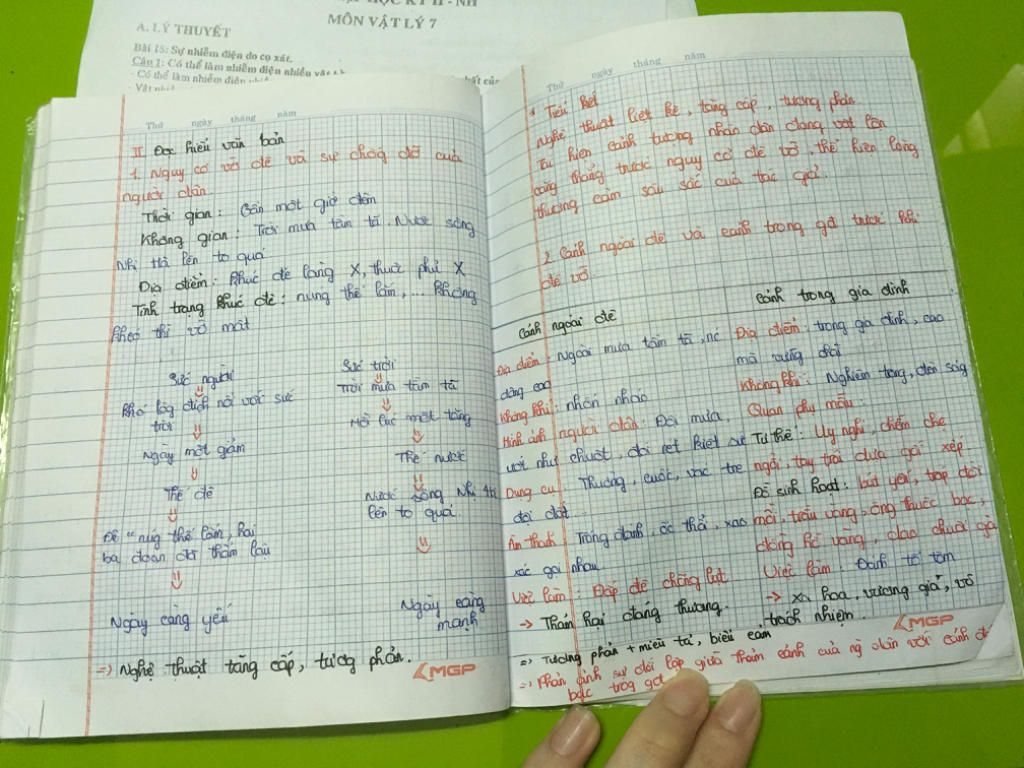 MÔN VẬT LÝ 7
A. LÝ THUYẾT
Bài 15: Sự nhiễm điện do cọ xát.
Câu 1: Có thể làm nhiễm điện nhiều vật
- Có thể làm nhiễm điện
Thứ ngày tháng năm
II. Đọc hiểu văn bản
1. Nguy cơ vỡ đê và sự chống đỡ của
người dân.
Thời gian: Gần một giờ đêm
Không gian: Trời mưa tầm tã. Nước sông
Nhị Hà lên to quá
Địa điểm: Khúc đê làng X, thuộc phủ X
Tình trạng khúc đê: núng thế lắm, ... không
khéo thì vỡ mất
Sức người
Khó lòg địch nổi với sức
trời
Ngày một giảm
Thế đê
Đê "núg thế lắm, hai
ba đoạn đã thẩm lậu
Ngày càng yếu
Sức trời
Trời mưa tầm tã
Mỗi lúc một tăng
Thế nước
Nước sông Nhị Hà
lên to quá.
Ngày càng
mạnh
=> Nghệ thuật tăng cấp, tương phản.
MGP
Thứ ngày tháng năm
* Tiểu kết
Nghệ thuật liệt kê, tăng cấp, tương phản
Tái hiện cảnh tượng nhân dân đang vật lộn
căng thẳng trước nguy cơ đê vỡ, thể hiện lòng
thương cảm sâu sắc của tác giả.
2. Cảnh ngoài đê và cảnh trong gđ trước khi
đê vỡ.
Cảnh ngoài đê
Địa điểm: Ngoài mưa tầm tã, nc
dâng cao
Không khí: nhốn nháo
Hình ảnh người dân: Đội mưa,
ướt như chuột, đói rét kiệt sức
Dụng cụ: Thuổng, cuốc, vác tre
đội đất.
Âm thanh: Trống đánh, ốc thổi, xao
xác gọi nhau.
Việc làm: Đắp đê chống lụt
→ Thảm hại đáng thương.
Cảnh trong gia đình
Địa điểm: trong gia đình, cao
mà vững chãi
Không khí: Nghiêm trang, đèn sáng
Quan phụ mẫu:
Tư thế: Uy nghi, chễm chệ
ngồi, tay trái dựa gối xếp
Đồ sinh hoạt: bát yến, tráp đồi
mồi, trầu vàng, ống thuốc bạc,
đồng hồ vàng, dao chuôi ngà
Việc làm: Đánh tổ tôm
→ xa hoa, vương giả, vô
trách nhiệm.
MGP
=> Tương phản + miêu tả, biểu cảm
=> Phản ánh sự đối lập giữa thảm cảnh của ng dân với cảnh đ
bạc trog gđ